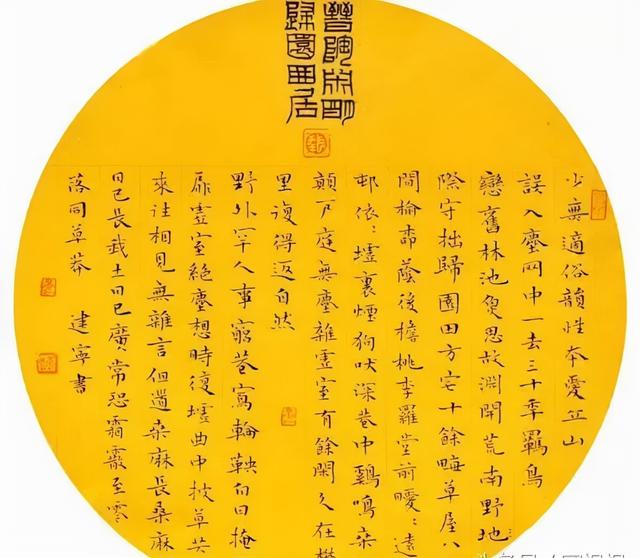 晉陶淵明
歸園田居
少無適俗韻性本愛丘山
誤入塵网中一去三十年羈鳥
戀舊林池魚思故淵開荒南野地
際守拙歸園田方宅十餘畮草屋八
間榆柳蔭後檐桃李羅堂前曖:遠
邨依:墟裏煙狗吠深巷中鷄鳴桑
顛戶庭無塵雜虛室有餘閑久在樊
里復得返自然
野外罕人事窮巷寡輪鞅白日掩
扉虛室絕塵想時復墟曲中披草共
來往相見無雜言但道桑麻長桑麻
日已長我土日已廣常恐霜霰至零
落同草莽 建寧書